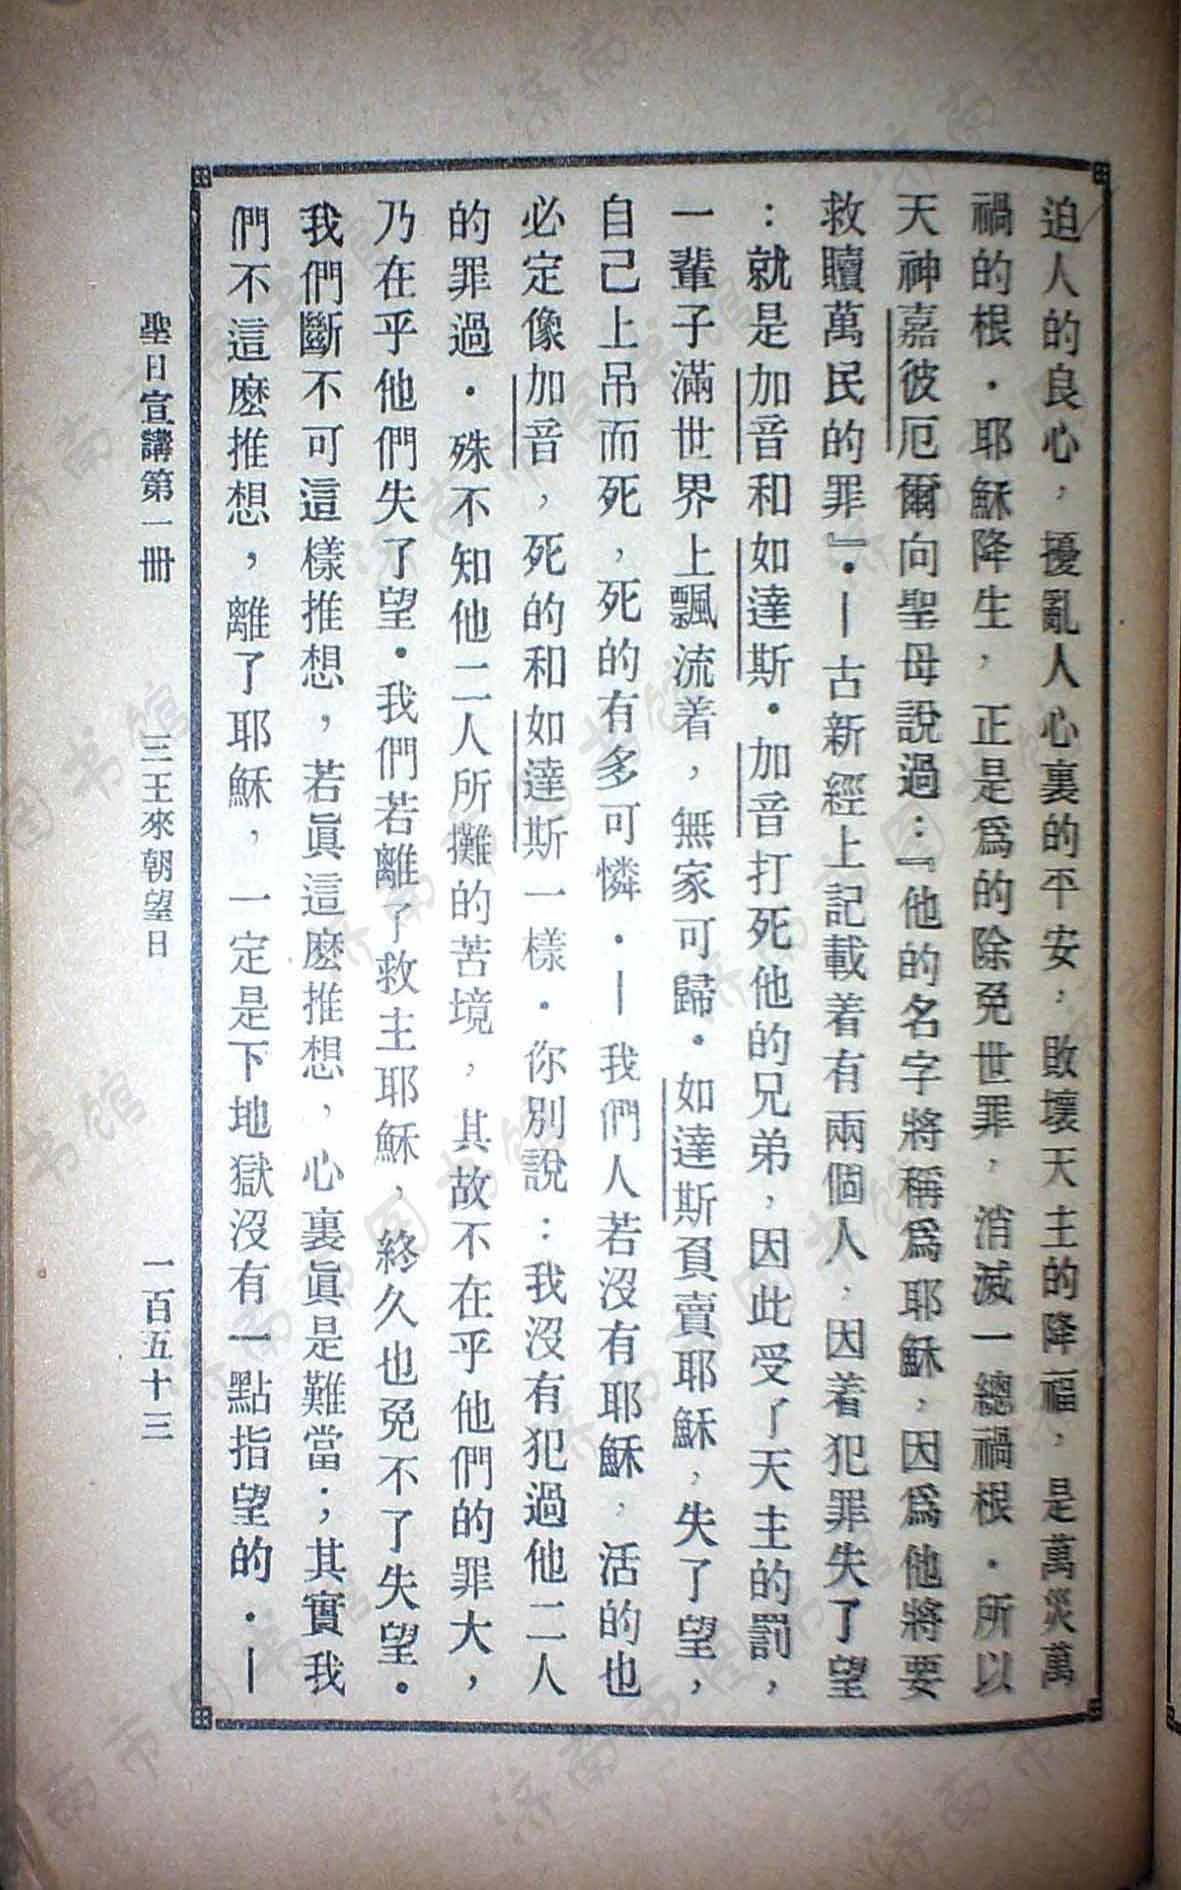 迫人的良心，擾亂人心裏的平安，敗壞天主的降福，是萬災萬
禍的根．耶穌降生，正是爲的除免世罪，消滅一總禍根．所以
天神嘉彼厄爾向聖母說過：『他的名字將稱爲耶穌，因爲他將要
救贖萬民的罪』．—古新經上記載着有兩個人，因着犯罪失了望
：就是加音和如達斯．加音打死他的兄弟，因此受了天主的罰，
一輩子滿世界上飄流着，無家可歸．如達斯負賣耶穌，失了望，
自己上吊而死，死的有多可憐．—我們人若沒有耶穌，活的也
必定像加音，死的和如達斯一樣．你別說：我沒有犯過他二人
的罪過．殊不知他二人所攤的苦境，其故不在乎他們的罪大，
乃在乎他們失了望．我們若離了救主耶穌，終久也免不了失望．
我們斷不可這樣推想，若眞這麼推想，心裏眞是難當；其實我
們不這麼推想，離了耶穌，一定是下地獄沒有一點指望的．—
聖日宣講第一冊　三王來朝望日　一百五十三
济南市图书馆